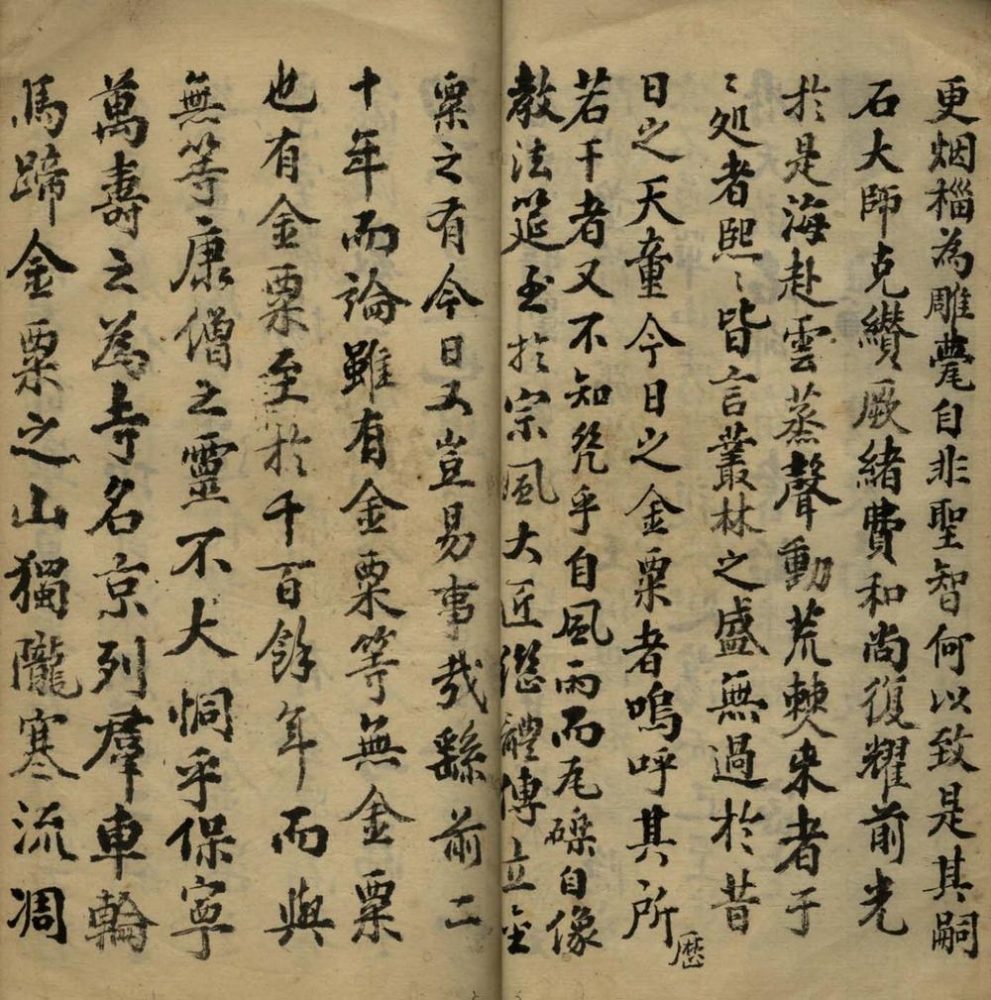 更烟椔為雕甍自非聖智何以致是其嗣
石大師克纘厥緒費和尚復耀前光
於是海赴雲蒸聲動荒僰来者于
〻処者熙〻皆言叢林之盛無過於昔
日之天童今日之金粟者嗚呼其所
歷
若干者又不知凭乎自風雨而尾礫自像
教法筵至於宗風大匠繼體傳立金
粟之有今日又豈易事哉繇前二
十年而論雖有金粟等無金粟
也有金粟至於千百餘年而與
無等康僧之靈不大恫乎保寧
萬壽之為寺名京列羣車輪
馬蹄金粟之山獨隴寒流凋